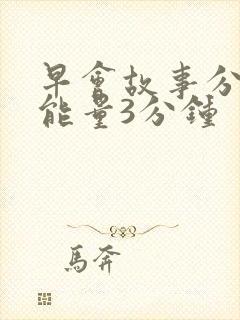 早會故事分
能量3分鍾
馬奔